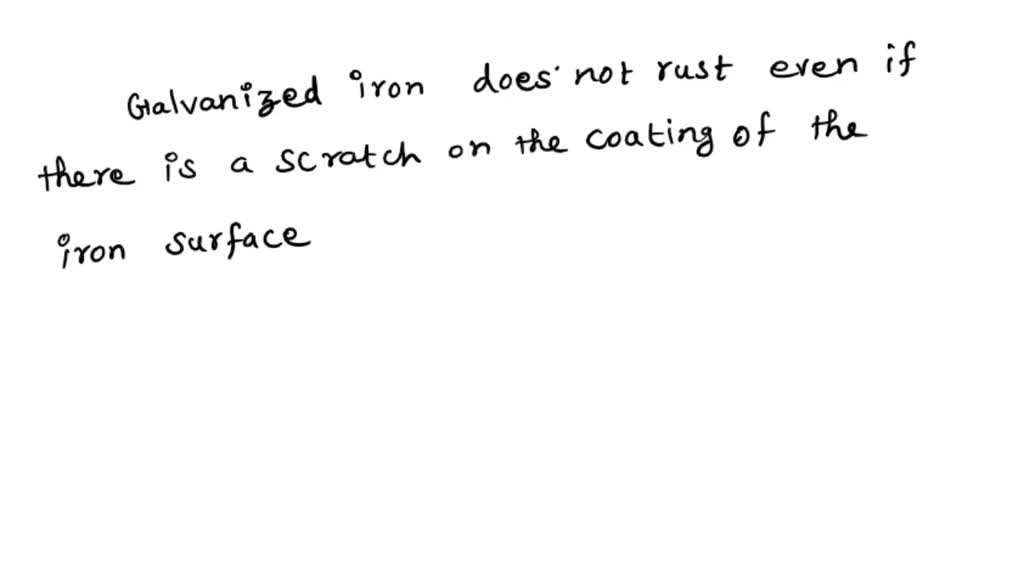 Galvanized iron does not rust even if
there is a scratch on the coating of the
iron surface